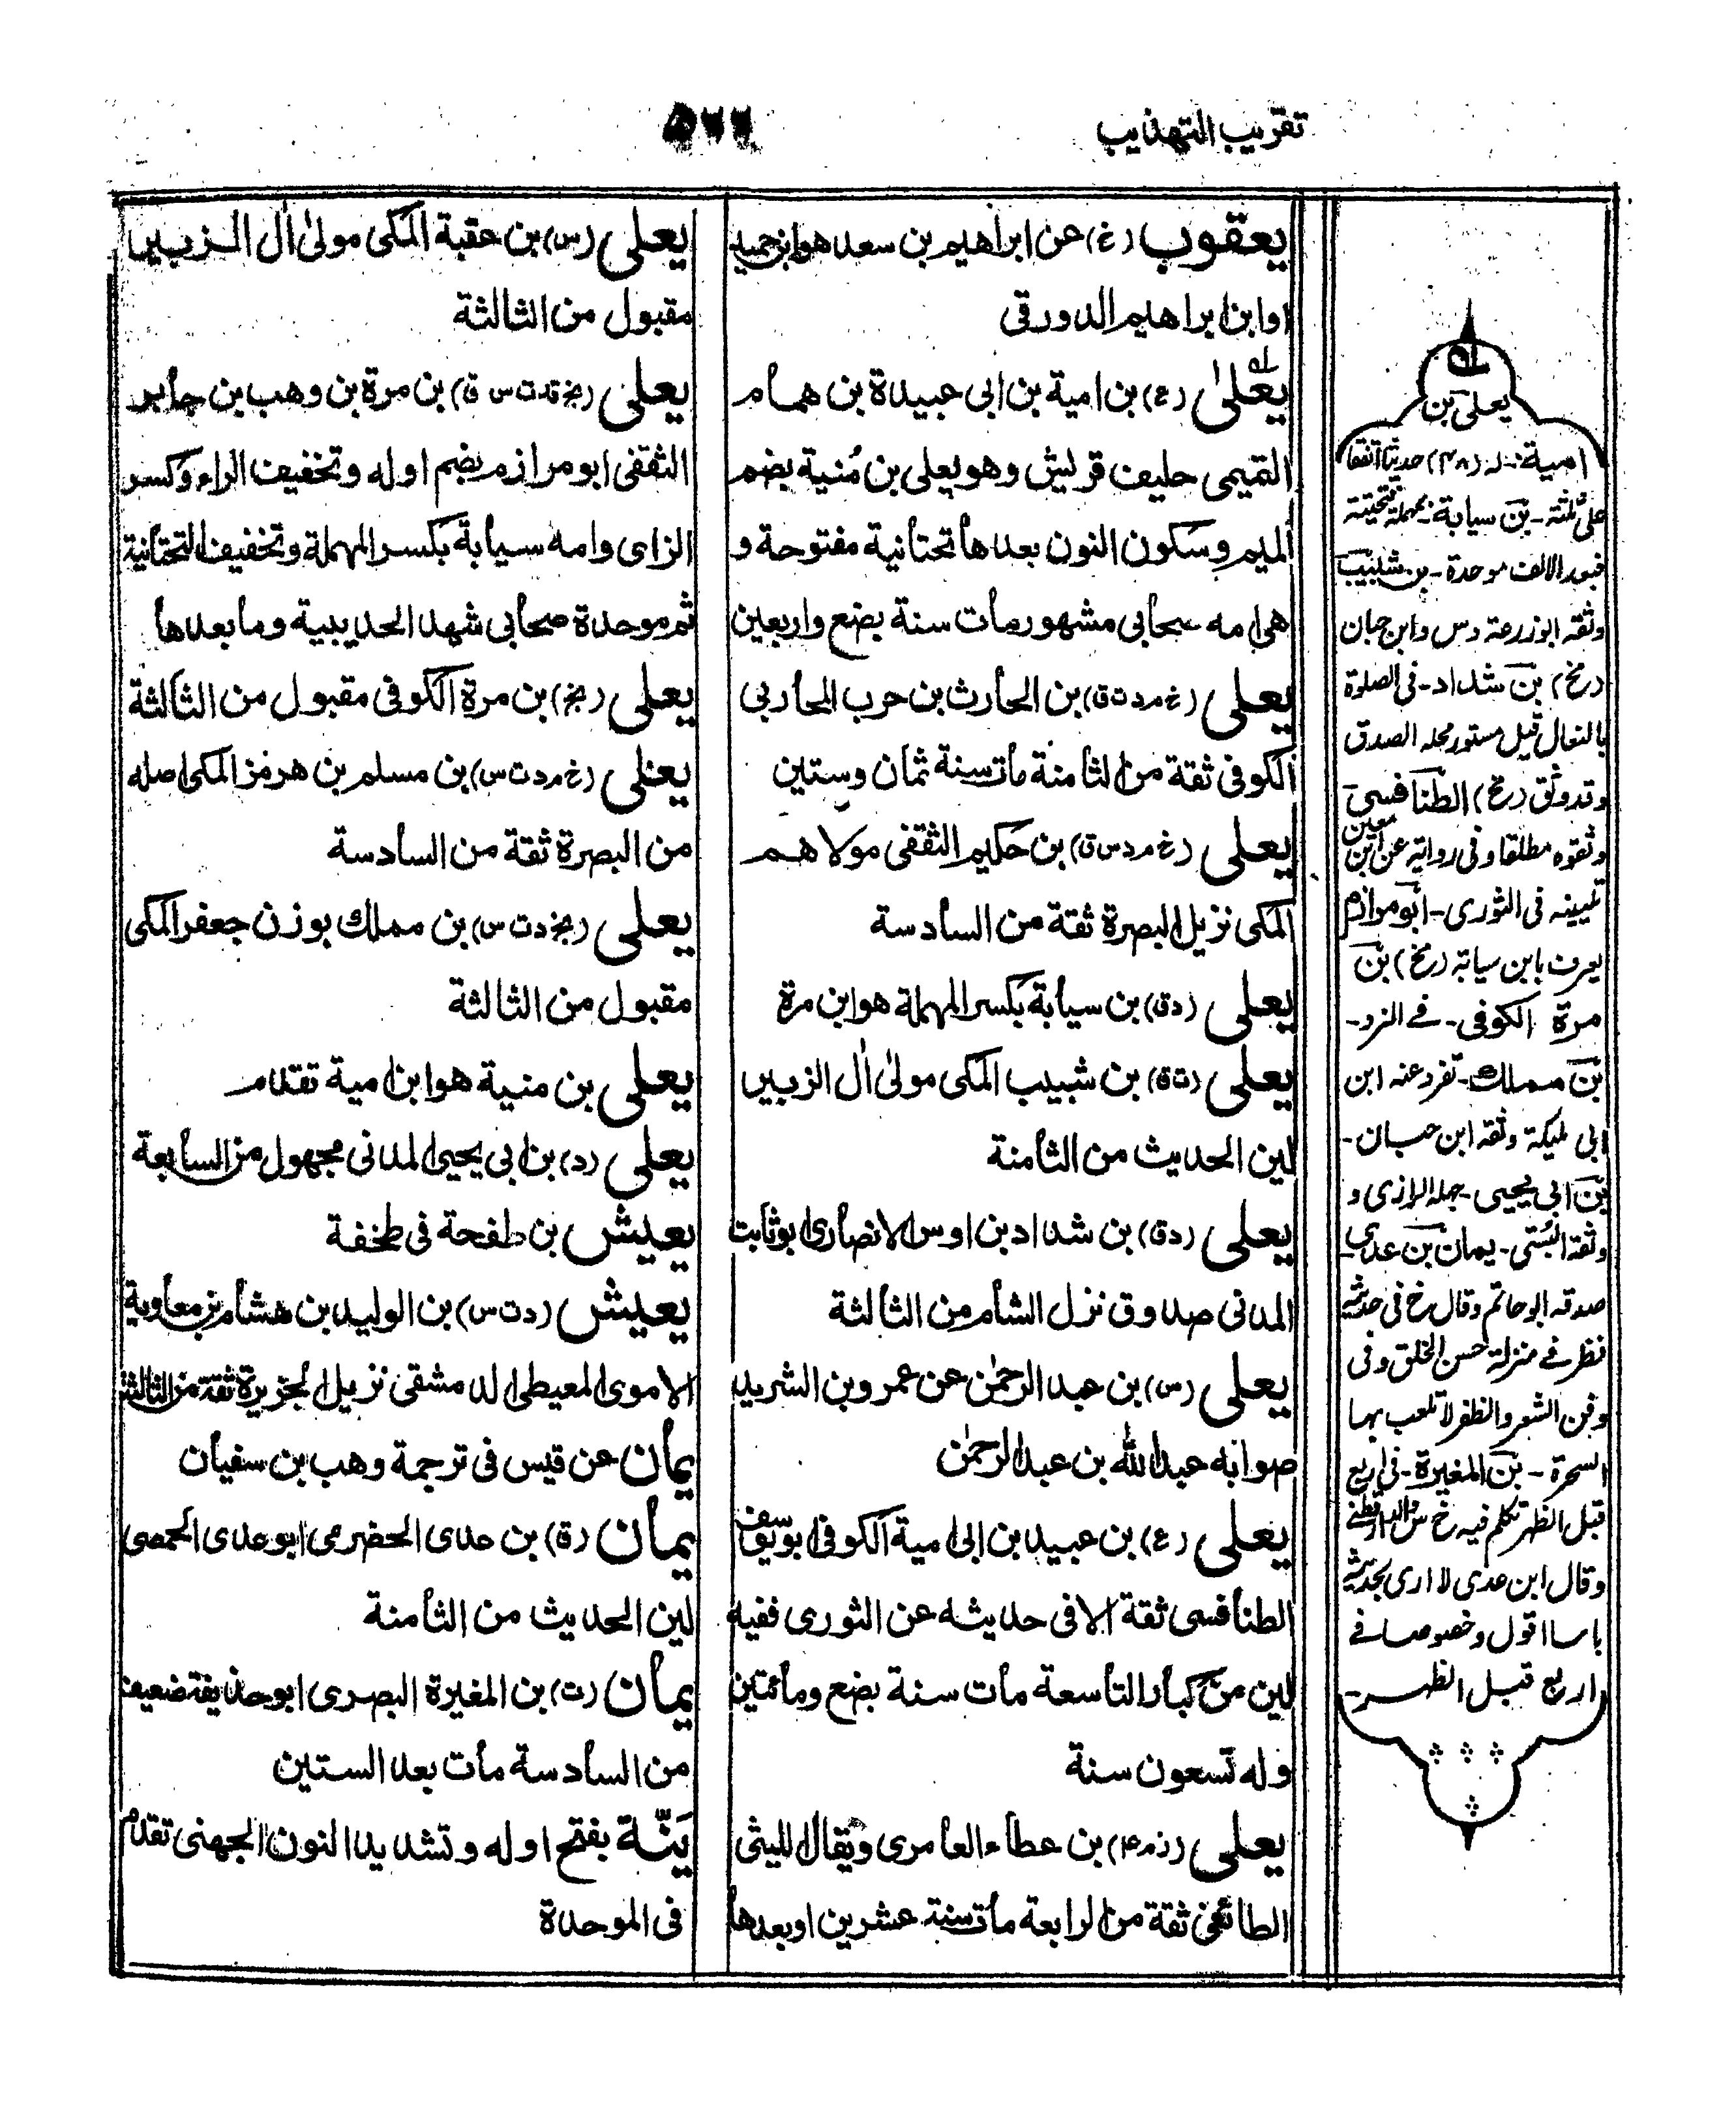 تقريب التهذيب
٥٦٦
يعقوب (خ) عن ابراهيم بن سعد هو ابن حميد
او ابن ابراهيم الدورقى
يعلى (ع) بن امية بن ابى عبيدة بن همام
التميمى حليف قريش وهو يعلى بن مُنية بضم
الميم وسكون النون بعدها تحتانية مفتوحة و
هى امه صحابى مشهور مات سنة بضع واربعين
يعلى (خ م د ت ق) بن الحارث بن حرب المحاربى
الكوفى ثقة من الثامنة مات سنة ثمان وستين
يعلى (خ م د س ق) بن حكيم الثقفى مولاهم
المكى نزيل البصرة ثقة من السادسة
يعلى (د ق) بن سيابة بكسر المهملة هو ابن مرة
يعلى (ت ق) بن شبيب المكى مولى اٰل الزبير
لين الحديث من الثامنة
يعلى (د ق) بن شداد بن اوس الانصارى ابو ثابت
المدنى صدوق نزل الشام من الثالثة
يعلى (س) بن عبد الرحمٰن عن عمرو بن الشريد
صوابه عبد الله بن عبد الرحمٰن
يعلى (ع) بن عبيد بن ابى امية الكوفى ابو يوسف
الطنافسى ثقة الا فى حديثه عن الثورى ففيه
لين من كبار التاسعة مات سنة بضع ومائتين
وله تسعون سنة
يعلى (ز م ٤) بن عطاء العامرى ويقال الليثى
الطائفى ثقة من الرابعة مات سنة عشرين او بعدها
يعلى (س) بن عقبة المكى مولى اٰل الزبير
مقبول من الثالثة
يعلى (بخ قد ت س ق) بن مرة بن وهب بن جابر
الثقفى ابو مرازم بضم اوله وتخفيف الراء وكسر
الزاى وامه سيابة بكسر المهملة وتخفيف التحتانية
ثم موحدة صحابى شهد الحديبية وما بعدها
يعلى (بخ) بن مرة الكوفى مقبول من الثالثة
يعلى (خ م د ت س) بن مسلم بن هرمز المكى اصله
من البصرة ثقة من السادسة
يعلى (بخ د ت س) بن مملك بوزن جعفر المكى
مقبول من الثالثة
يعلى بن منية هو ابن امية تقدم
يعلى (د) بن ابى يحيى المدنى مجهول من السابعة
يعيش بن طفحة فى طخفة
يعيش (د ت س) بن الوليد بن هشام بن معاوية
الاموى المعيطى الدمشقى نزيل الجزيرة ثقة من الثالثة
يمان عن قيس فى ترجمة وهب بن سفيان
يمان (ق) بن عدى الحضرمى ابو عدى الحمصى
لين الحديث من الثامنة
يمان (ت) بن المغيرة البصرى ابو حذيفة ضعيف
من السادسة مات بعد الستين
يَنّة بفتح اوله وتشديد النون الجهنى تقدم
فى الموحدة
يعلى بن
امية:- له (٢٨) حديثا اتفقا
على ثلثة - بن سيابة - بمهملة فتحتية
فبعد الالف موحدة - بن شبيب
وثقه ابو زرعة وس وابن حبان
(مخ) بن شداد - فى الصلوة
بالنعال قيل مستور محله الصدق
وقد وثق (مخ) الطنافسى
وثقوه مطلقا وفى رواية عن ابن معين
تليينه فى الثورى - ابو مرازم
يعرف بابن سيابة (مخ) بن
مرة الكوفى - فے النرد -
بن مملك - تفرد عنه ابن
ابى مليكة وثقه ابن حبان -
بن ابى يحيى - جهله الرازى و
وثقه البستى - يمان بن عدى -
صدوقه ابو حاتم وقال خ فى حديثه
نظر فے منزلة حسن الخلق وفى
وفن الشعر والظفر لا تلعب بها
السحرة - بن المغيرة - فى اربع
قبل الظهر تكلم فيه خ س والدارقطنے
وقال ابن عدى لا ارى بحديثه
باسا اقول وخصوصا فے
اربع قبل الظهر -